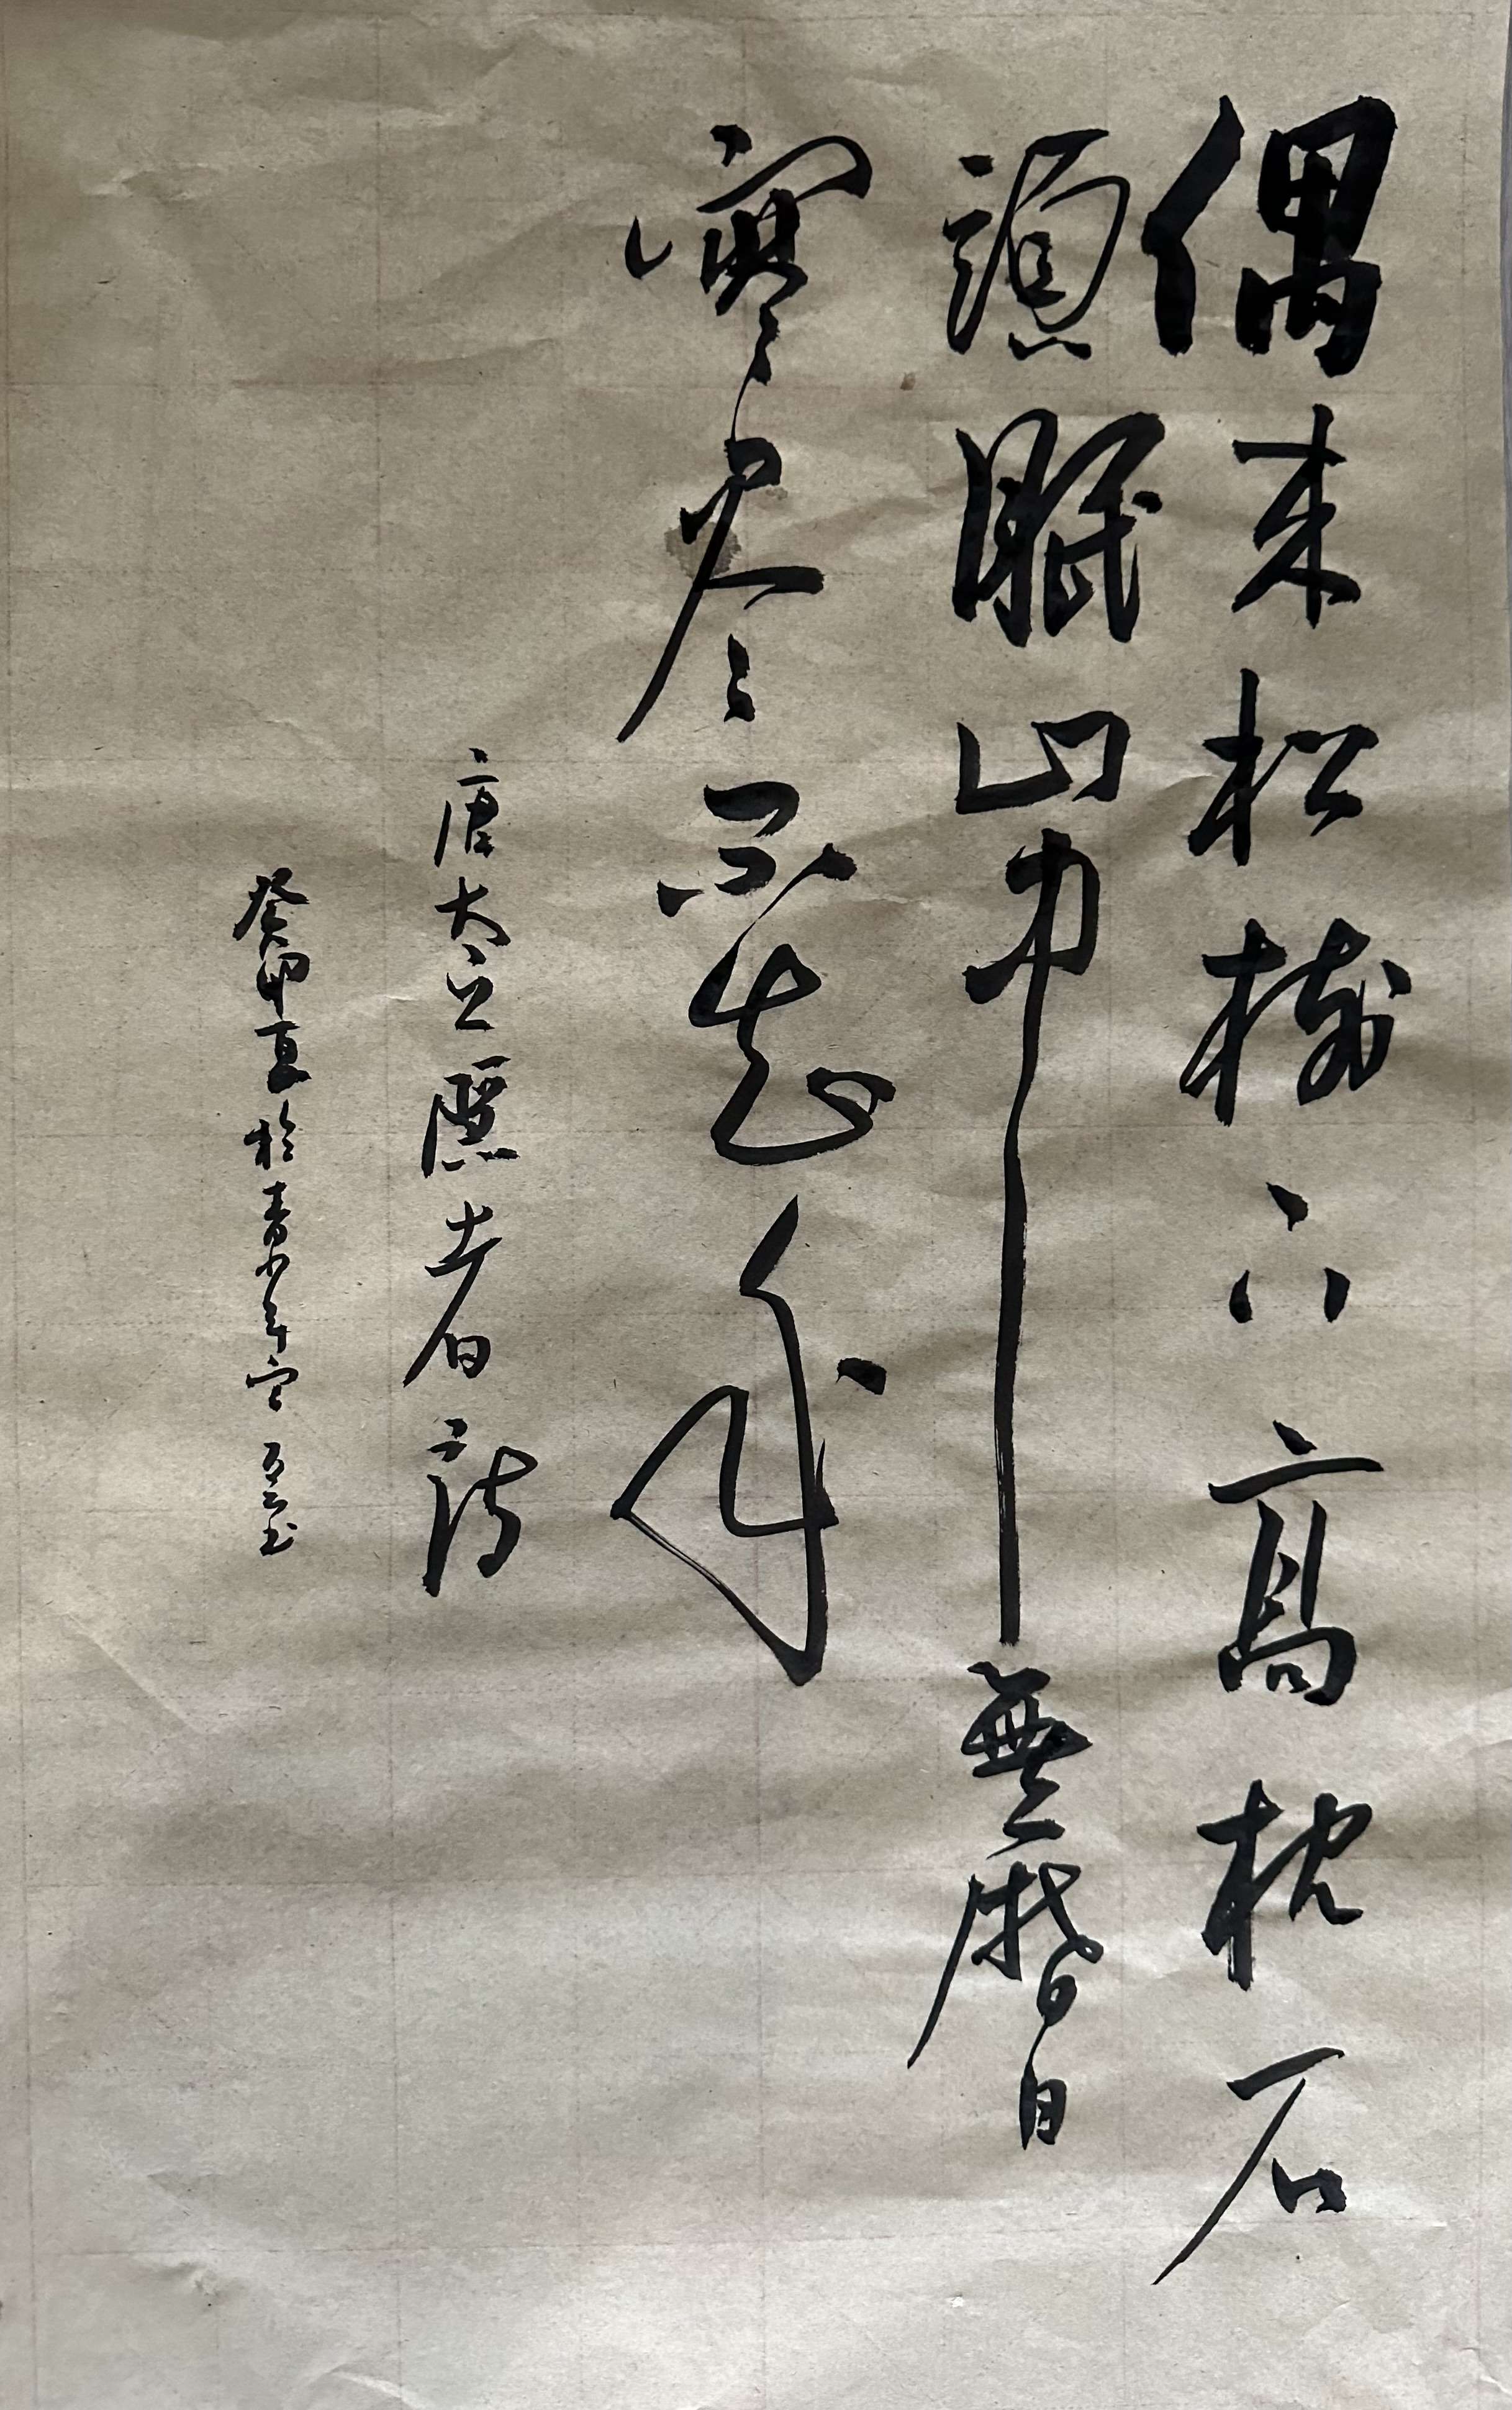 偶来松樹下高枕石
頭眠山中無曆日
寒尽不知年
唐太上隱者詩
癸卯夏於青